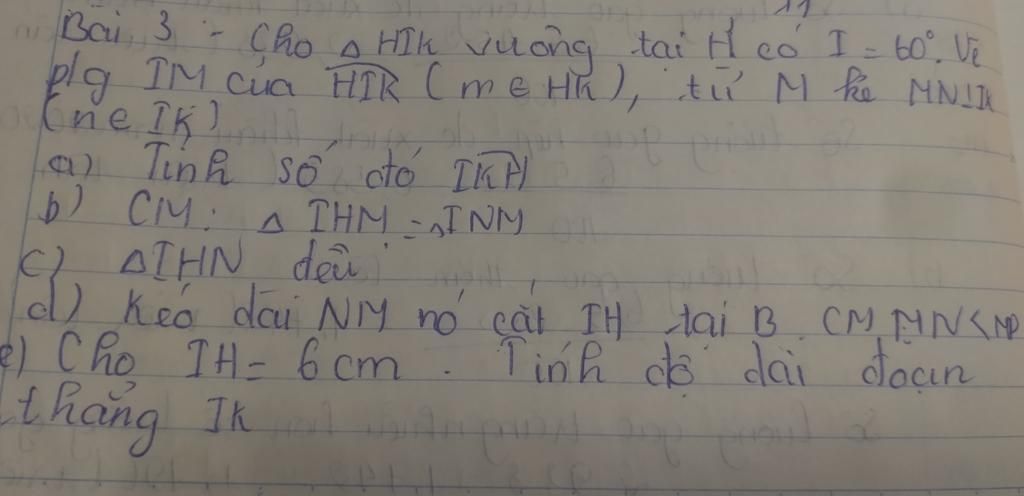 Bài 3 - Cho △ HIK vuông tại H có I = 60°. Vẽ
p/g IM của HIK ( m ∈ HK ), từ M kẻ MN⊥IK
( n ∈ IK )
a) Tính số đó IKH
b) CM: △ IHM = △INM
c) △IHN đều
d) Kéo dài NM nó cắt IH tại B CM MN<MB
e) Cho IH = 6cm. Tính độ dài đoạn
thẳng IK